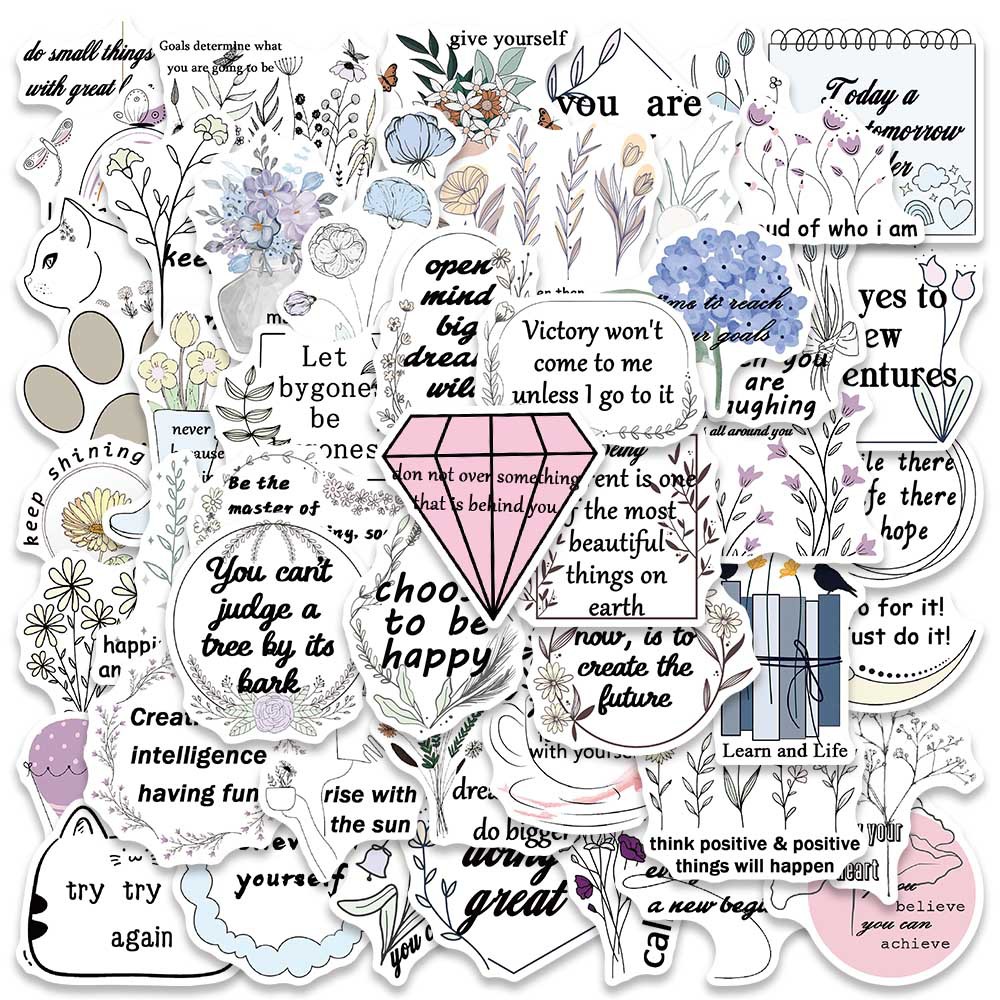 do small things
with great
Goals determine what
you are going to be
give yourself
you are
Today a
tomorrow
proud of who i am
keep
open
mind
big
dreams
wild
Victory won't
come to me
unless I go to it
time to reach
your goals
yes to
new
adventures
Let
bygones
be
bygones
when you
are
laughing
all around you
never
because
keep shining
Be the
master of
don not over something
that is behind you
being
the most
beautiful
things on
earth
there
life there
hope
You can't
judge a
tree by its
bark
choose
to be
happy
now, is to
create the
future
go for it!
just do it!
Learn and Life
Creat
intelligence
having fun
rise with
the sun
with yourself
do bigger
think positive & positive
things will happen
try try
again
yourself
you
doing
great
a new begi
your
heart
you
believe
you can
achieve